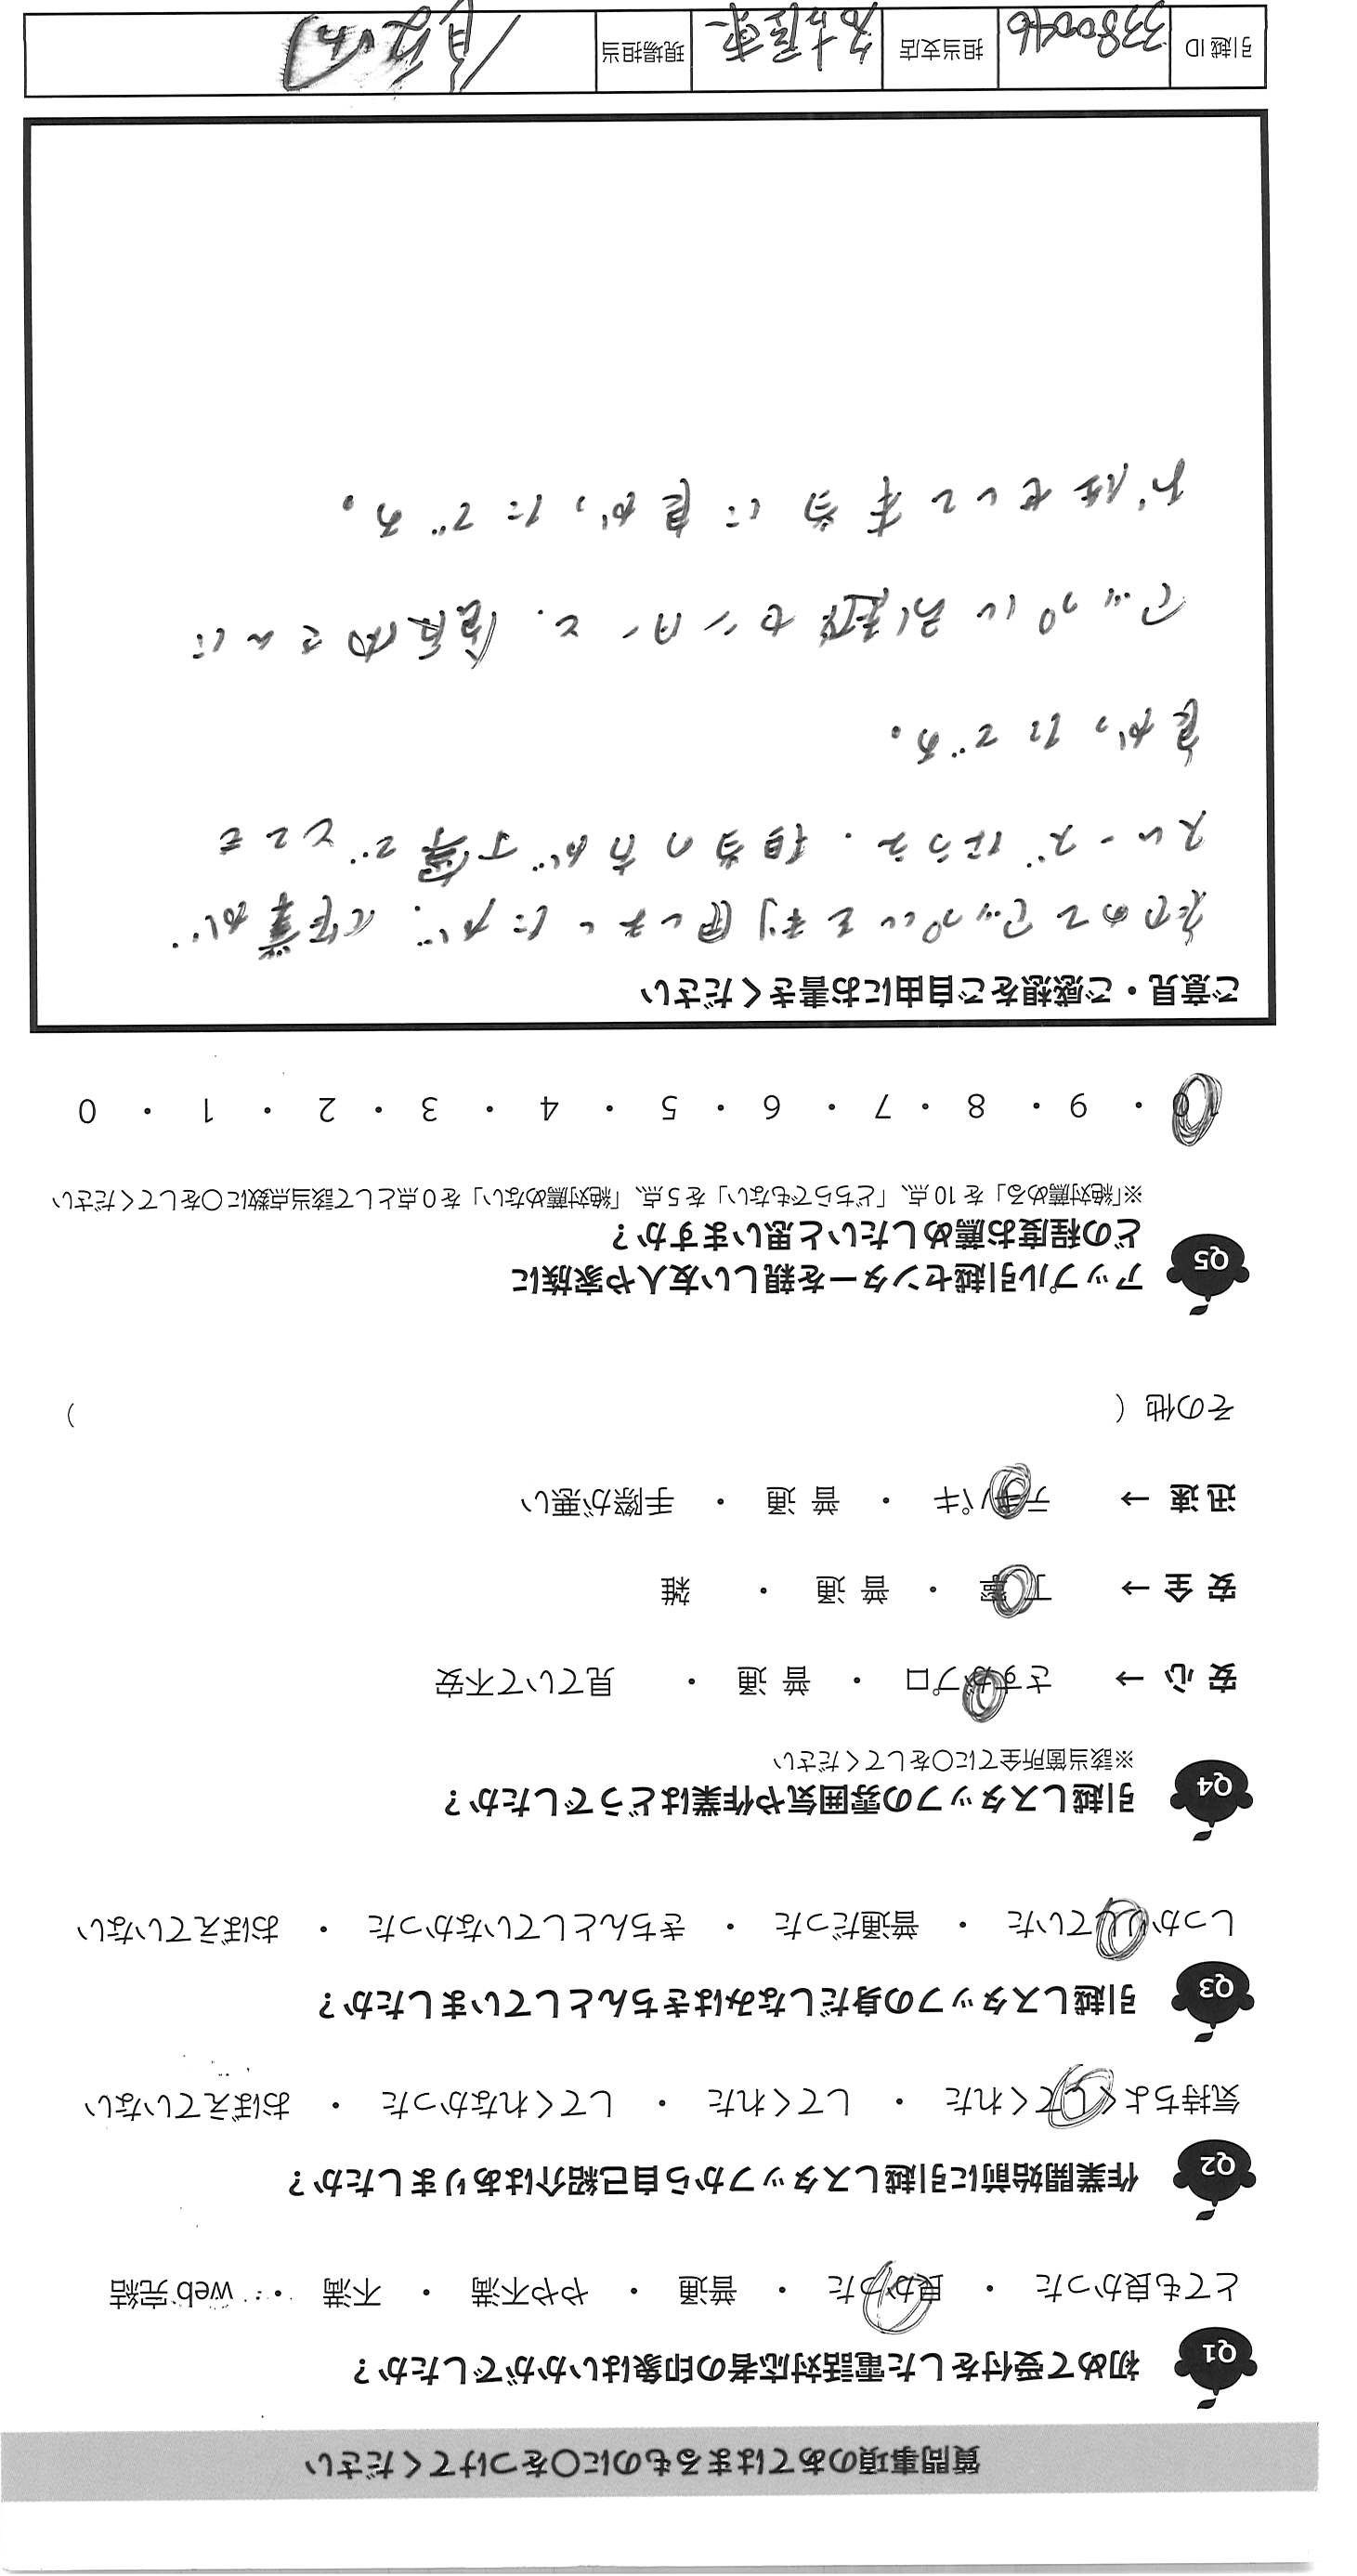 質問事項のあてはまるものに〇をつけてください
Q1 初めて受付をした電話対応者の印象はいかがでしたか？
とても良かった ・ 良かった ・ 普通 ・ やや不満 ・ 不満 ・ web 完結
Q2 作業開始前に引越しスタッフから自己紹介はありましたか？
気持ちよくしてくれた ・ してくれた ・ してくれなかった ・ おぼえていない
Q3 引越しスタッフの身だしなみはきちんとしていましたか？
しっかりしていた ・ 普通だった ・ きちんとしていなかった ・ おぼえていない
Q4 引越しスタッフの雰囲気や作業はどうでしたか？
※該当箇所全てに〇をしてください
安 心 → さすがプロ ・ 普 通 ・ 見ていて不安
安 全 → 丁 寧 ・ 普 通 ・ 雑
迅 速 → テキパキ ・ 普 通 ・ 手際が悪い
その他（ ）
Q5 アップル引越センターを親しい友人や家族に
どの程度お薦めしたいと思いますか？
※「絶対薦める」を 10 点、「どちらでもない」を 5 点、「絶対薦めない」を 0 点として該当点数に〇をしてください
10 ・ 9 ・ 8 ・ 7 ・ 6 ・ 5 ・ 4 ・ 3 ・ 2 ・ 1 ・ 0
ご意見・ご感想をご自由にお書きください
初めてアップルを利用しましたが、作業が
スムーズなうえ、担当の方が丁寧でとても
良かったです。
アップル引越センターと、さんに
お任せして本当に良かったです。
引越 ID 3380046 担当支店 名古屋東 現場担当